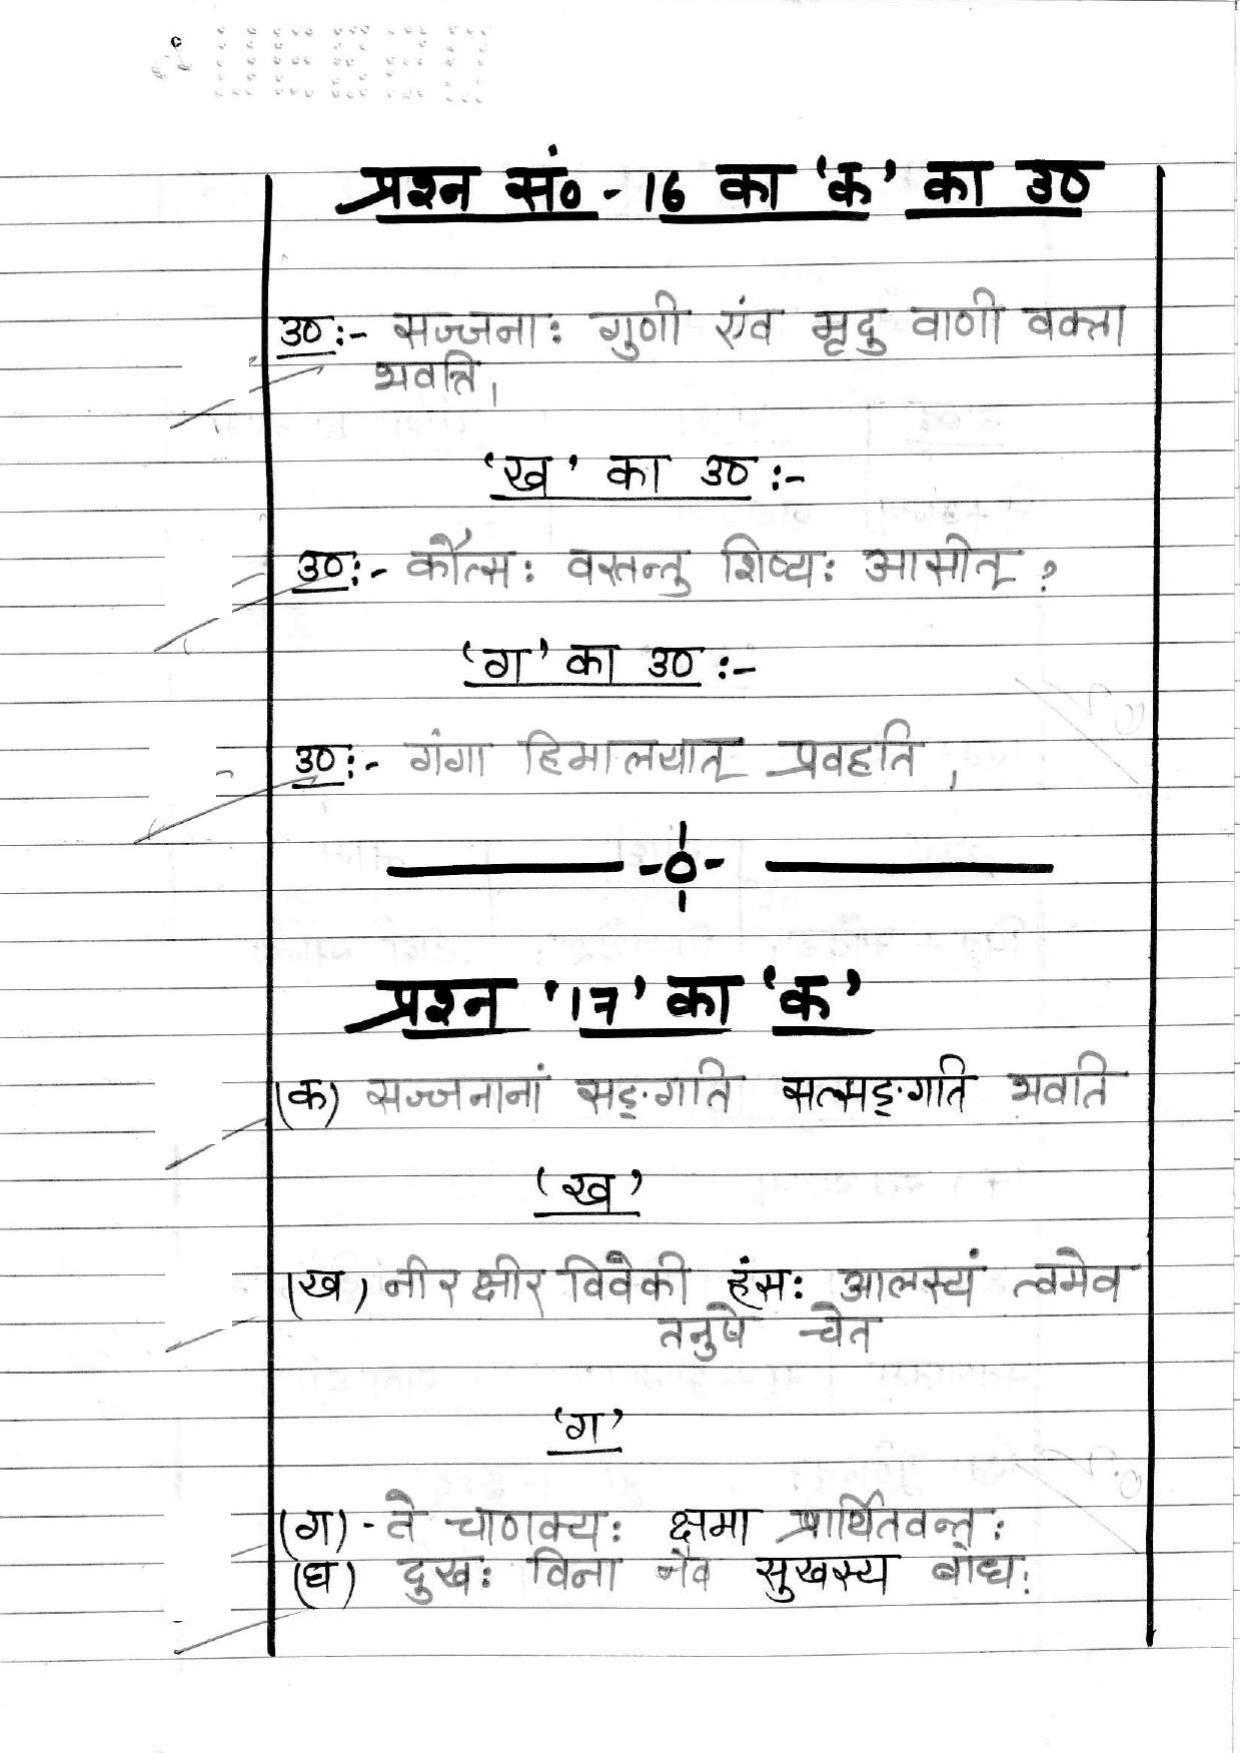 प्रश्न सं० - 16 का ‘क’ का उ०
उ० :- सज्जनाः गुणी एंव मृदु वाणी वक्ता
भवति ।
‘ख’ का उ० :-
उ० :- कौत्सः वरतन्तु शिष्यः आसीत् ?
‘ग’ का उ० :-
उ० :- गंगा हिमालयात् प्रवहति ,
प्रश्न ‘17’ का ‘क’
(क) सज्जनानां सङ्गति सत्सङ्गति भवति
‘ख’
(ख) नीर क्षीर विवेकी हंसः आलस्यं त्वमेव
तनुषे चेत
‘ग’
(ग) - ते चाणक्यः क्षमा प्रार्थितवन्तः
(घ) दुखः विना नैव सुखस्य बोधः